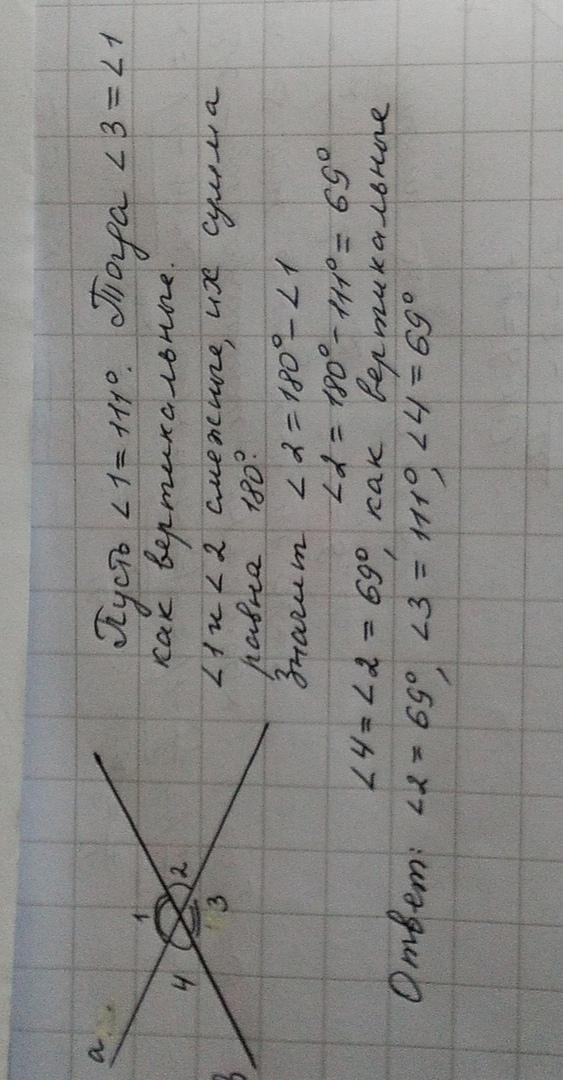 Пусть ∠1 = 111°. Тогда ∠3 = ∠1
как вертикальные.
∠1 и ∠2 смежные, их сумма
равна 180°.
Значит ∠2 = 180° - ∠1
∠2 = 180° - 111° = 69°
∠4 = ∠2 = 69°, как вертикальные
Ответ: ∠2 = 69°, ∠3 = 111°, ∠4 = 69°
a
1
4 2
3
в